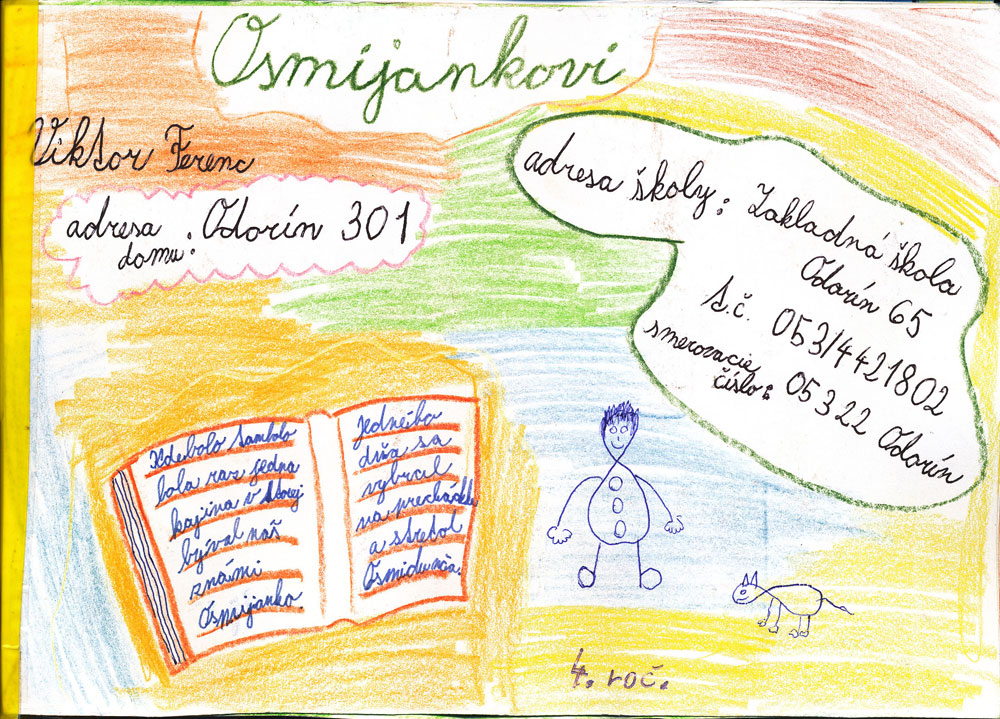 Osmijankovi
Viktor Ferenc
adresa : Odorín 301
domu
adresa školy : Základná škola
Odorín 65
s.č. 053/4421802
smerovacie
číslo : 05322 Odorín
Kdebolo tambolo
bola raz jedna
kajina v ktorej
býval náš
známi
Osmijanko.
Jedného
dňa sa
vybral
na prechádzk
a stretol
Osmidunča.
4. roč.